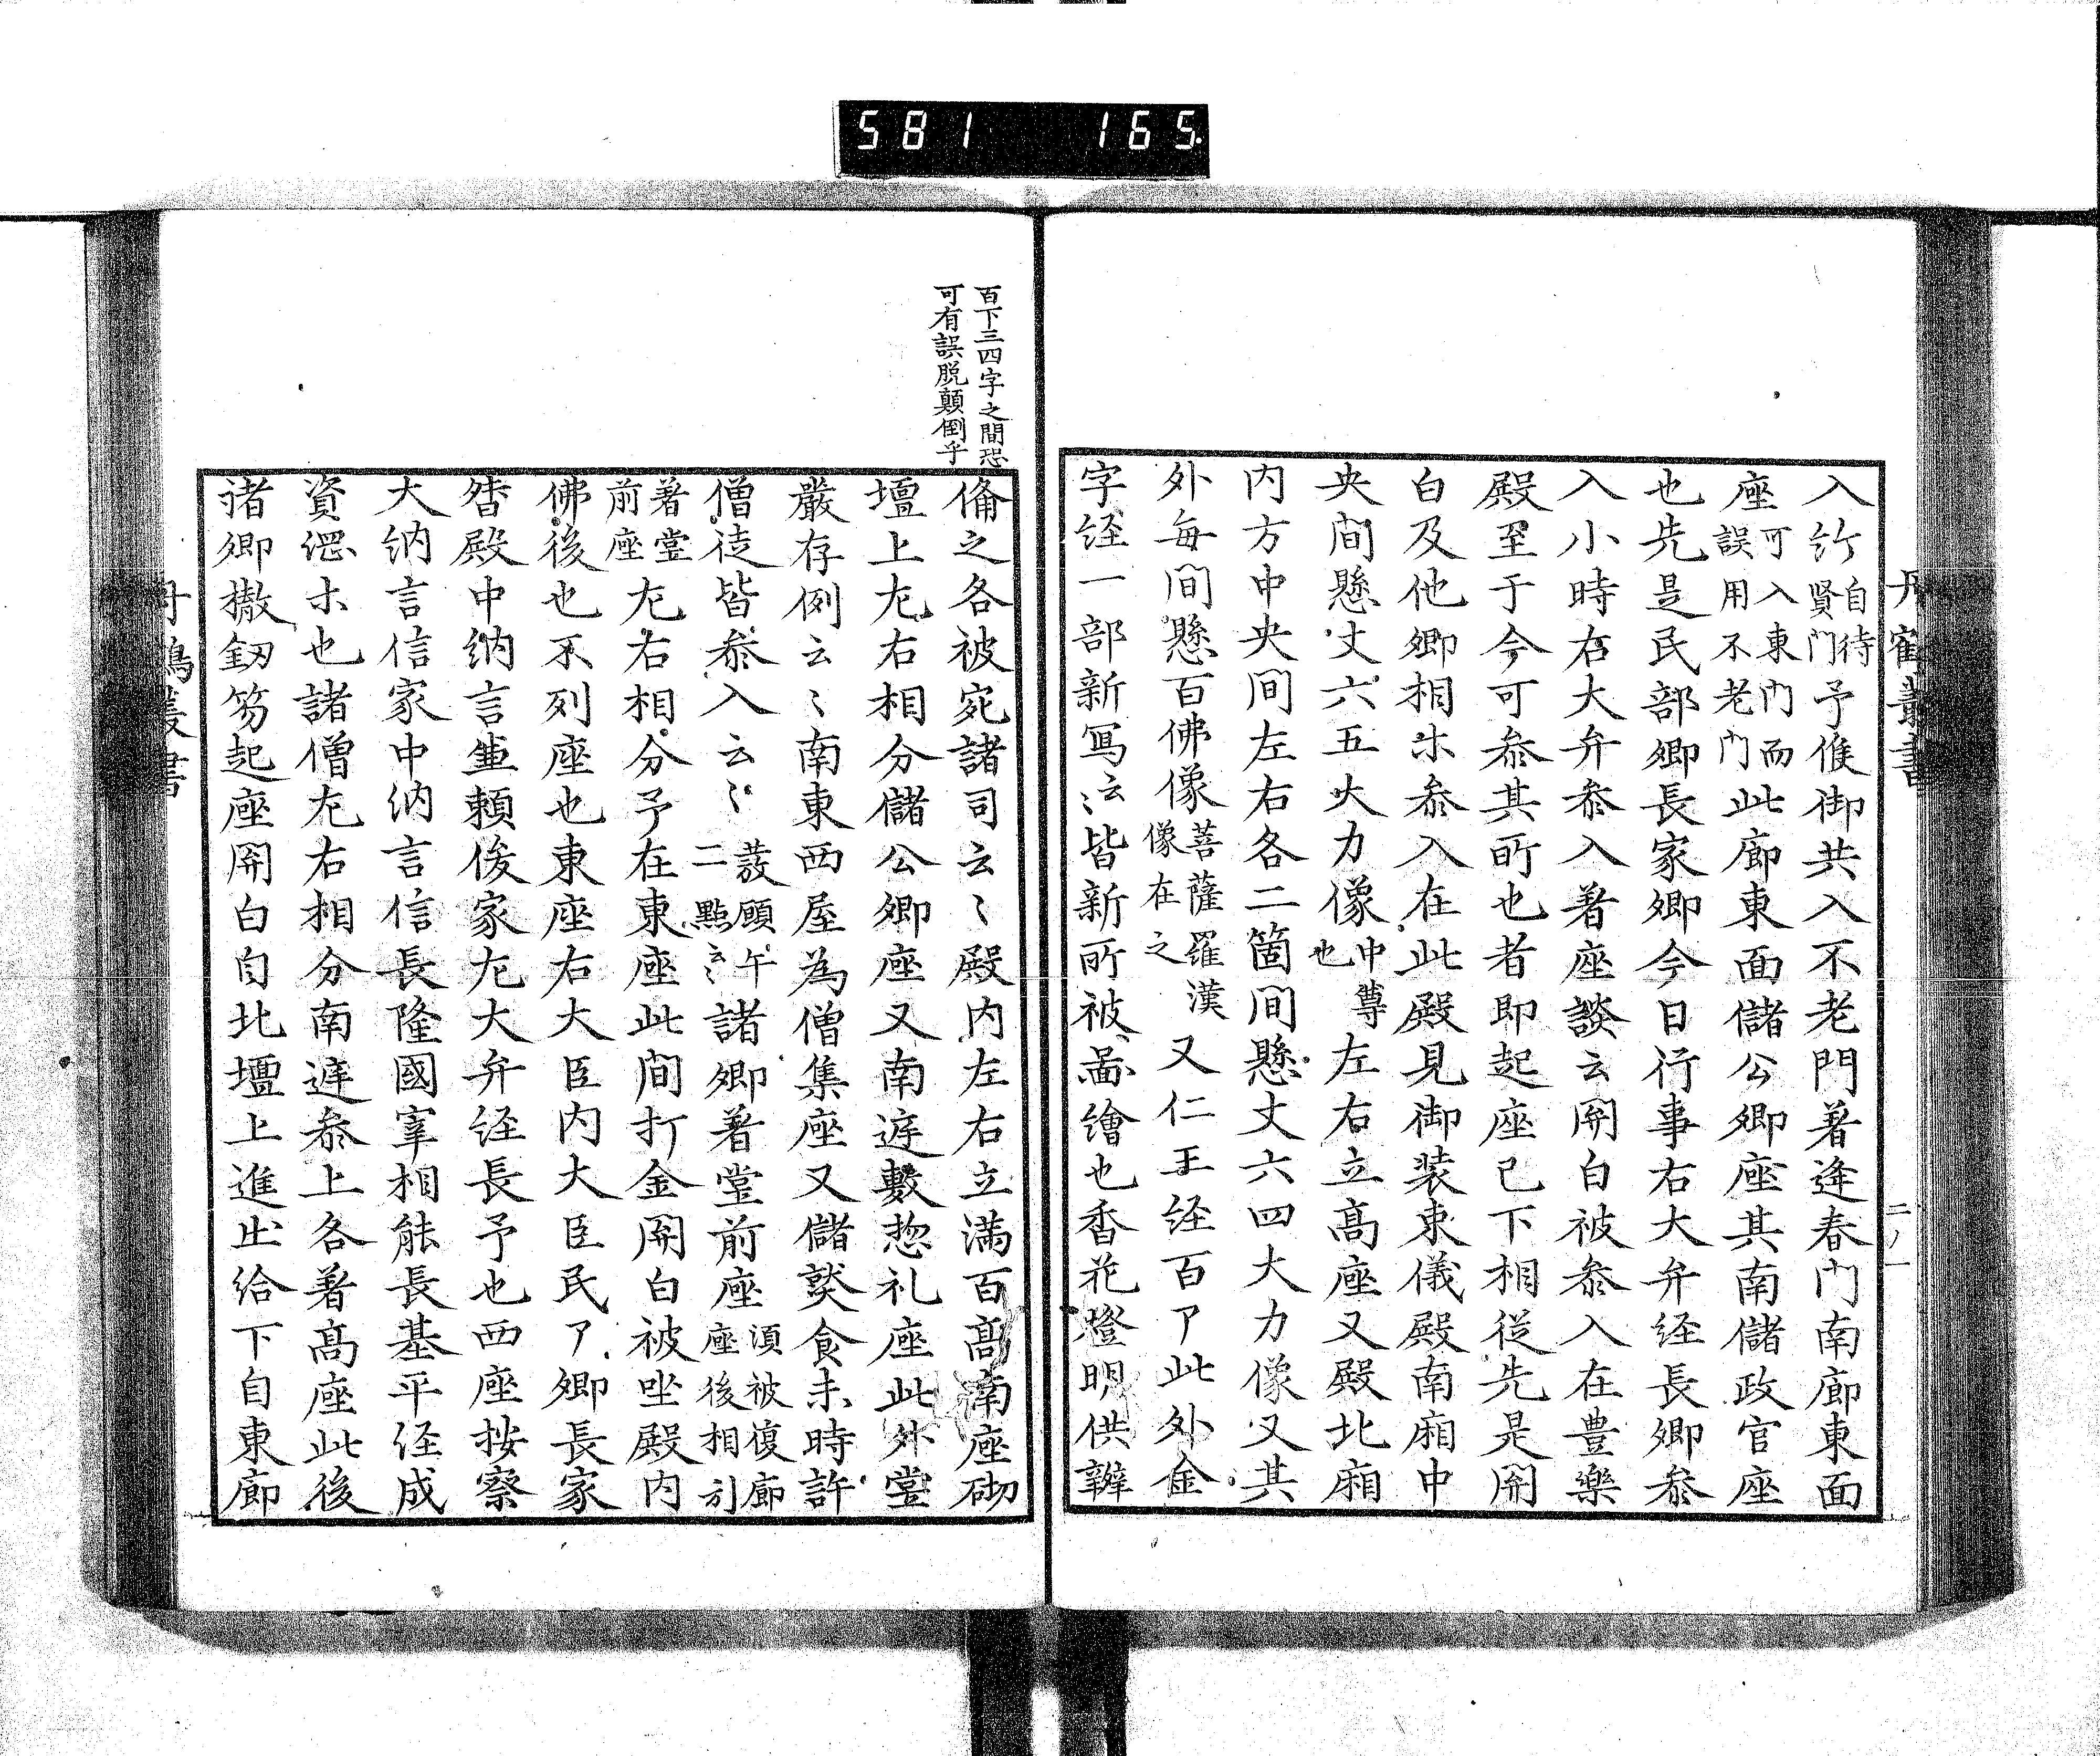 581 165
丹鶴叢書
二ノ一
入竹自待賢門予倶御共入不老門著逢春門南廊東面
座可入東門而誤用不老門此廊東面儲公卿座其南儲政官座
也先是民部卿長家卿今日行事右大弁経長卿参
入小時右大弁参入著座談云関白被参入在豊樂
殿至于今可参其所也者即起座已下相従先是関
白及他卿相ホ参入在此殿見御装束儀殿南廂中
央間懸丈六五大力像中尊也左右立髙座又殿北廂
内方中央间左右各二箇间懸丈六四大力像又其
外每间懸百佛像菩薩羅漢像在之又仁王经百了此外金
字经一部新冩云〻皆新所被啚繪也香花燈明供辨
百下三四字之間恐
可有誤脱顛倒乎
俻之各被宛諸司云〻殿内左右立満百髙南座砌
壇上左右相分儲公卿座又南庭敷惣礼座此外堂
嚴存例云〻南東西屋為僧集座又儲䬸食未時許
僧徒皆参入云〻發願午二點云〻諸卿著堂前座須被復廊座後相引
著堂前座左右相分予在東座此间打金関白被坐殿内
佛後也不列座也東座右大臣内大臣民了卿長家
㫺殿中納言兼頼俊家左大弁経長予也西座按察
大納言信家中納言信長隆國宰相能長基平经成
資𠃵ホ也諸僧左右相分南庭参上各著髙座此後
诸卿撤釼笏起座関白自北壇上進出给下自東廊
丹鶴叢書